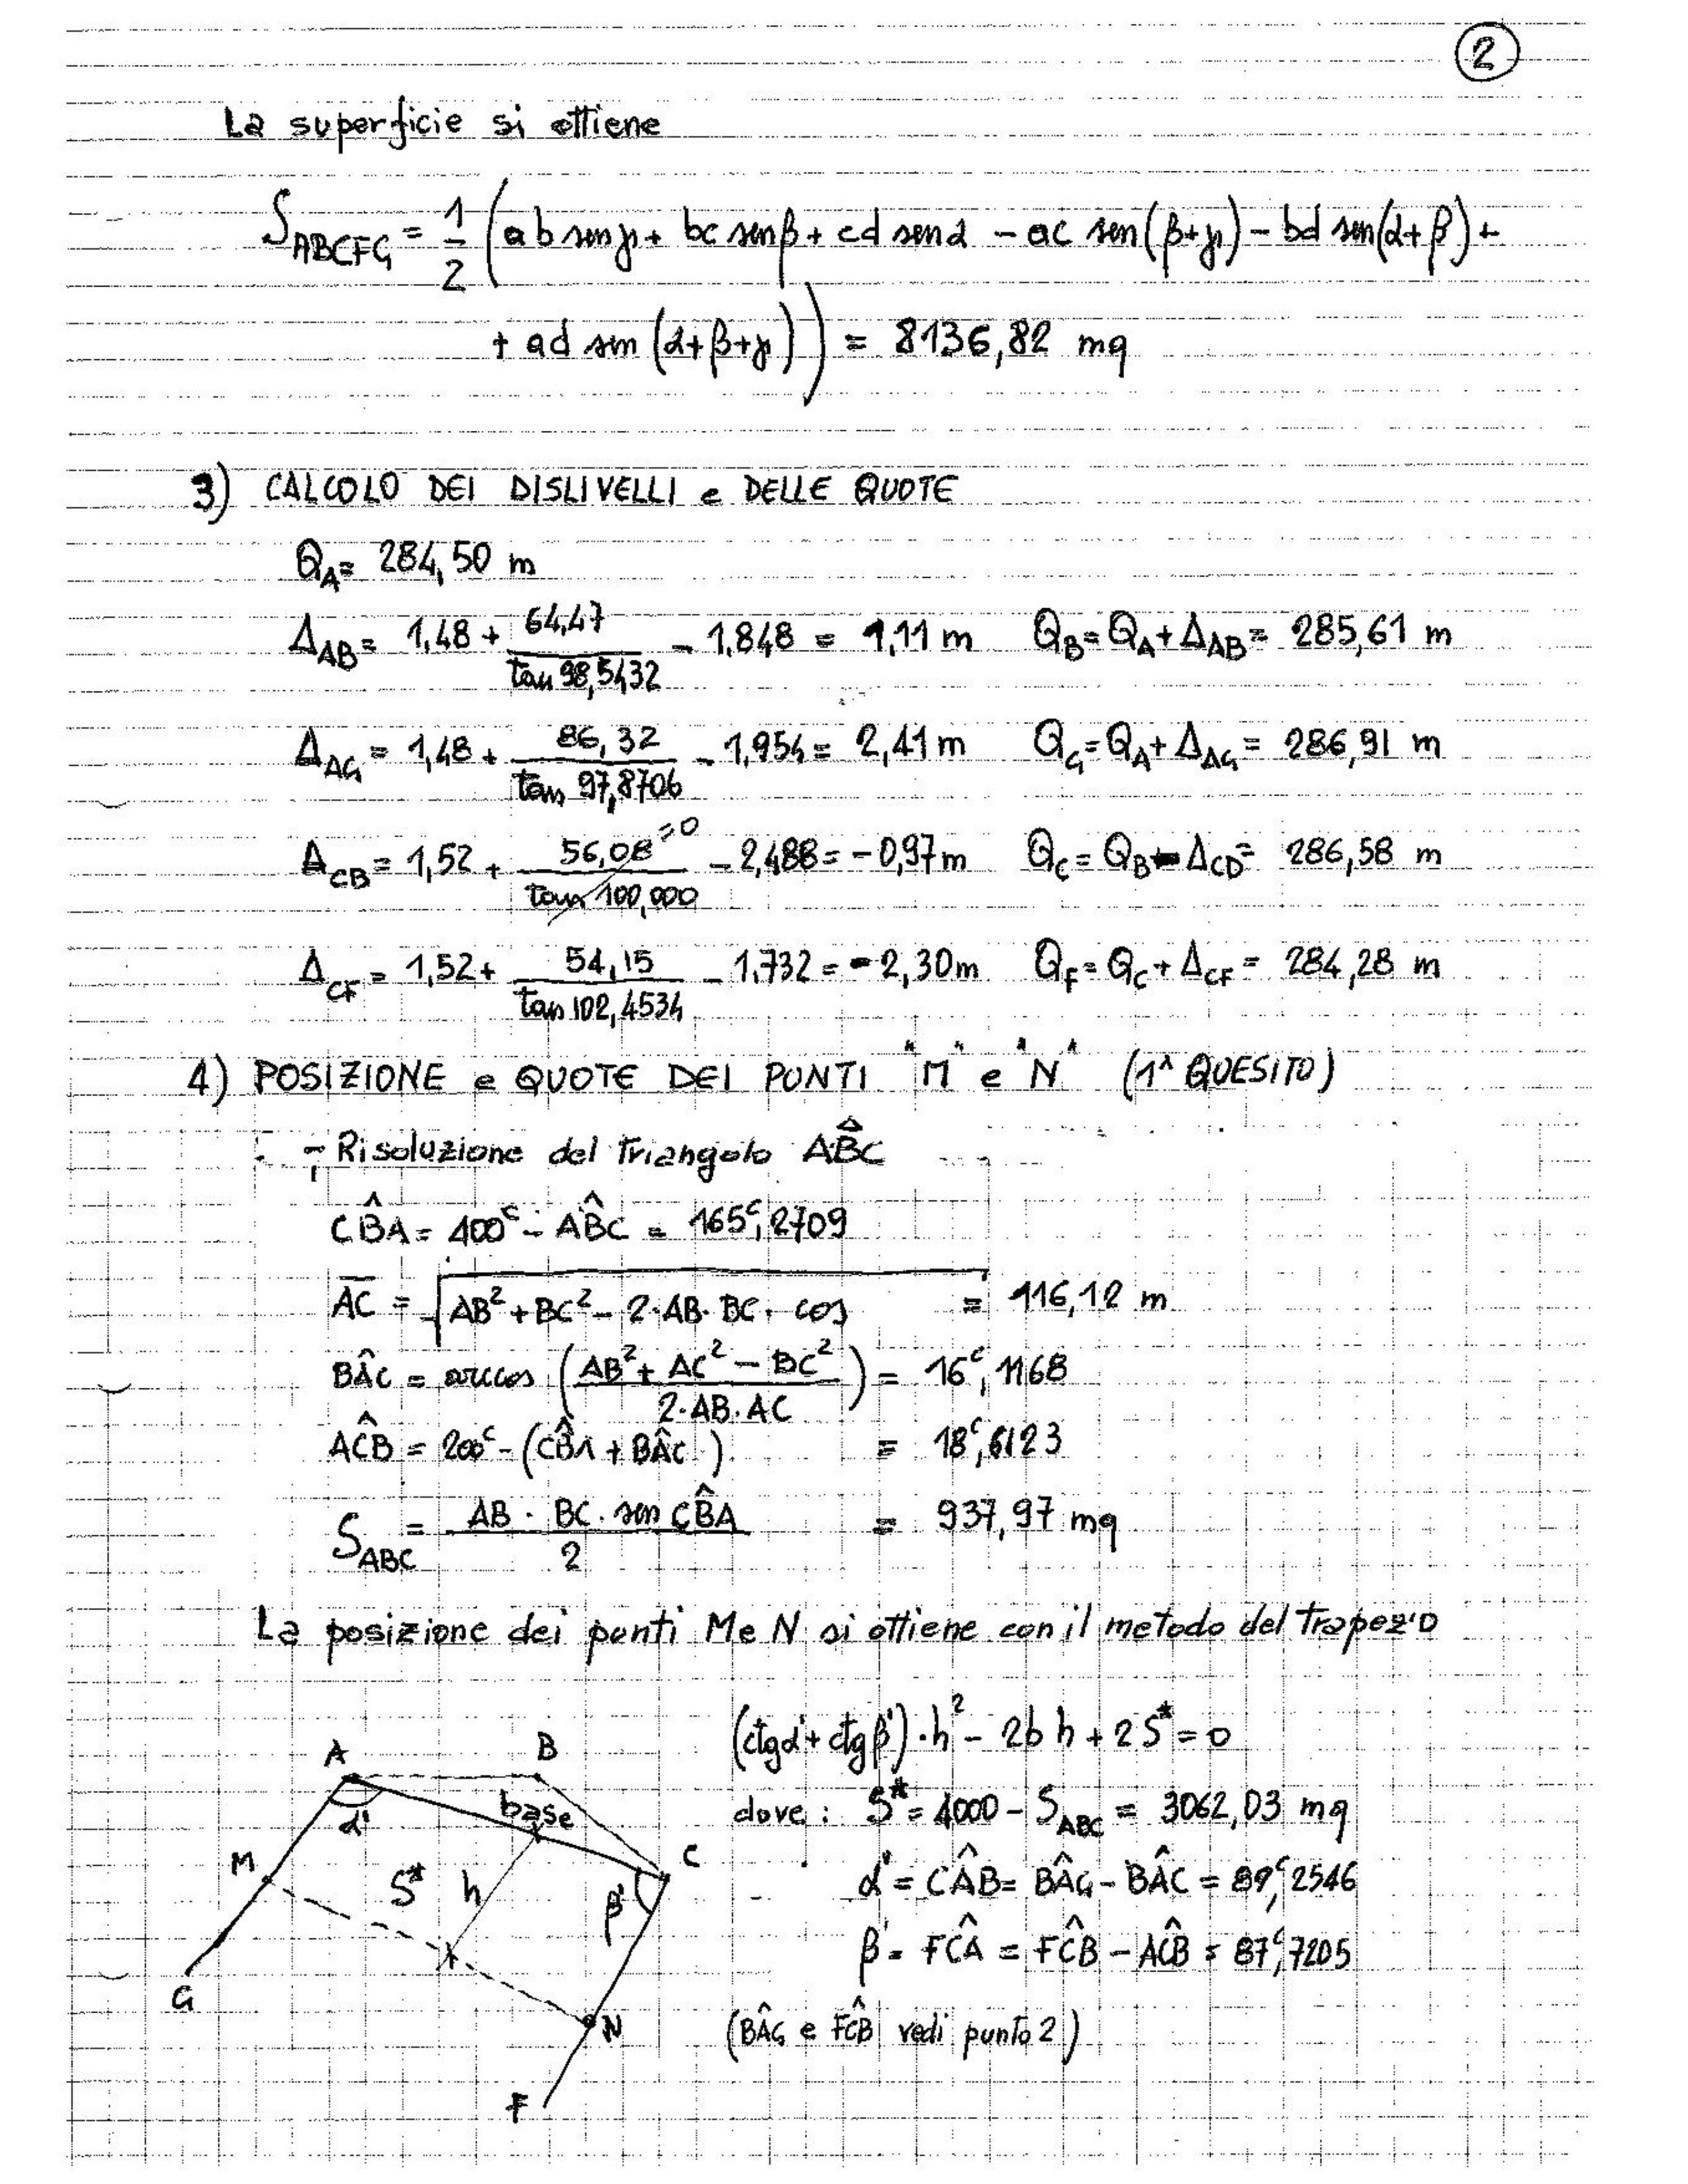 2
La superficie si ottiene
S_ABCFG = 1/2 (ab sen γ + bc sen β + cd sen α − ac sen(β+γ) − bd sen(α+β) +
+ ad sen (α+β+γ)) = 8136,82 mq
3) CALCOLO DEI DISLIVELLI e DELLE QUOTE
Q_A = 284,50 m
Δ_AB = 1,48 + 64,47 / tan 98,5432 − 1,848 = 1,11 m Q_B = Q_A + Δ_AB = 285,61 m
Δ_AG = 1,48 + 86,32 / tan 97,8706 − 1,954 = 2,41 m Q_G = Q_A + Δ_AG = 286,91 m
Δ_CB = 1,52 + 56,08 / tan 100,000 =0 − 2,488 = −0,97 m Q_C = Q_B − Δ_CD = 286,58 m
Δ_CF = 1,52 + 54,15 / tan 102,4534 − 1,732 = −2,30 m Q_F = Q_C + Δ_CF = 284,28 m
4) POSIZIONE e QUOTE DEI PUNTI "M" e "N" (1^ QUESITO)
- Risoluzione del triangolo ABC
CB̂A = 400ᶜ − AB̂C = 165ᶜ,2709
AC = √(AB² + BC² − 2·AB·BC· cos ) = 116,12 m
BÂC = arccos ((AB² + AC² − BC²) / (2·AB·AC)) = 16ᶜ,1168
AĈB = 200ᶜ − (CB̂A + BÂC) = 18ᶜ,6123
S_ABC = AB · BC · sen CB̂A / 2 = 937,97 mq
La posizione dei punti M e N si ottiene con il metodo del trapezio
(ctgα' + ctgβ')·h² − 2bh + 2S* = 0
dove: S* = 4000 − S_ABC = 3062,03 mq
α' = CÂB = BÂG − BÂC = 89ᶜ,2546
β' = FĈA = FĈB − AĈB = 87ᶜ,7205
(BÂG e FĈB vedi punto 2)
A
B
base
α'
C
M
S*
h
β'
G
N
F